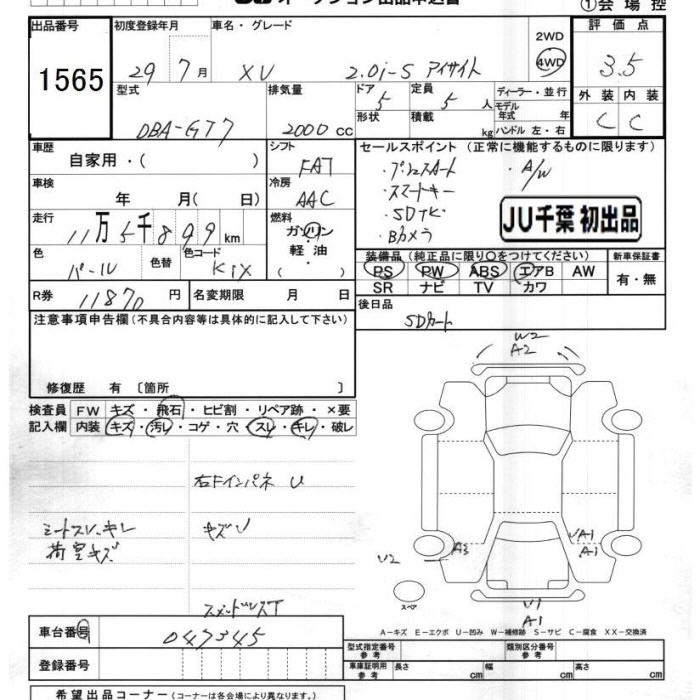 オークション出品申込書
①会場控
出品番号
1565
初度登録年月
29年 7月
車名・グレード
XV 2.0i-S アイサイト
2WD
4WD
評価点
3.5
外装 内装
C C
型式
DBA-GT7
排気量
2000 cc
ドア
5
形状
定員
5 人
積載
kg
ディーラー・並行
モデル年式 年
ハンドル 左・右
車歴
自家用・( )
シフト
FAT
車検
年 月( 日)
冷房
AAC
走行
11万5千899km
燃料
ガソリン
軽・油
・( )
色
パール
色替
色コード
K1X
R券
11870 円
名変期限 月 日
セールスポイント (正常に機能するものに限ります)
・プッシュスタート ・A/W
・スマートキー
・SDナビ
・Bカメラ
JU千葉 初出品
装備品 (純正品に限り○をつけてください)
PS PW ABS エアB AW
SR ナビ TV カワ
新車保証書
有・無
後日品
SDカード
注意事項申告欄(不具合内容等は具体的に記入して下さい)
修復歴 有 〔箇所 〕
検査員記入欄
FW キズ・飛石・ヒビ割・リペア跡・×要
内装 キズ・汚レ・コゲ・穴・スレ・キレ・破レ
右Fインパネ U
シートスレ・キレ キズU
荷室キズ
W2
A2
U2
A3
UA1
A1
スペア
U1
A1
A-キズ E-エクボ U-凹み W-補修跡 S-サビ C-腐食 XX-交換済
車台番号
047345
登録番号
型式指定番号 参考
類別区分番号 参考
車庫証明用 参考
長さ cm
幅 cm
高さ cm
希望出品コーナー (コーナーは各会場により異なります。)